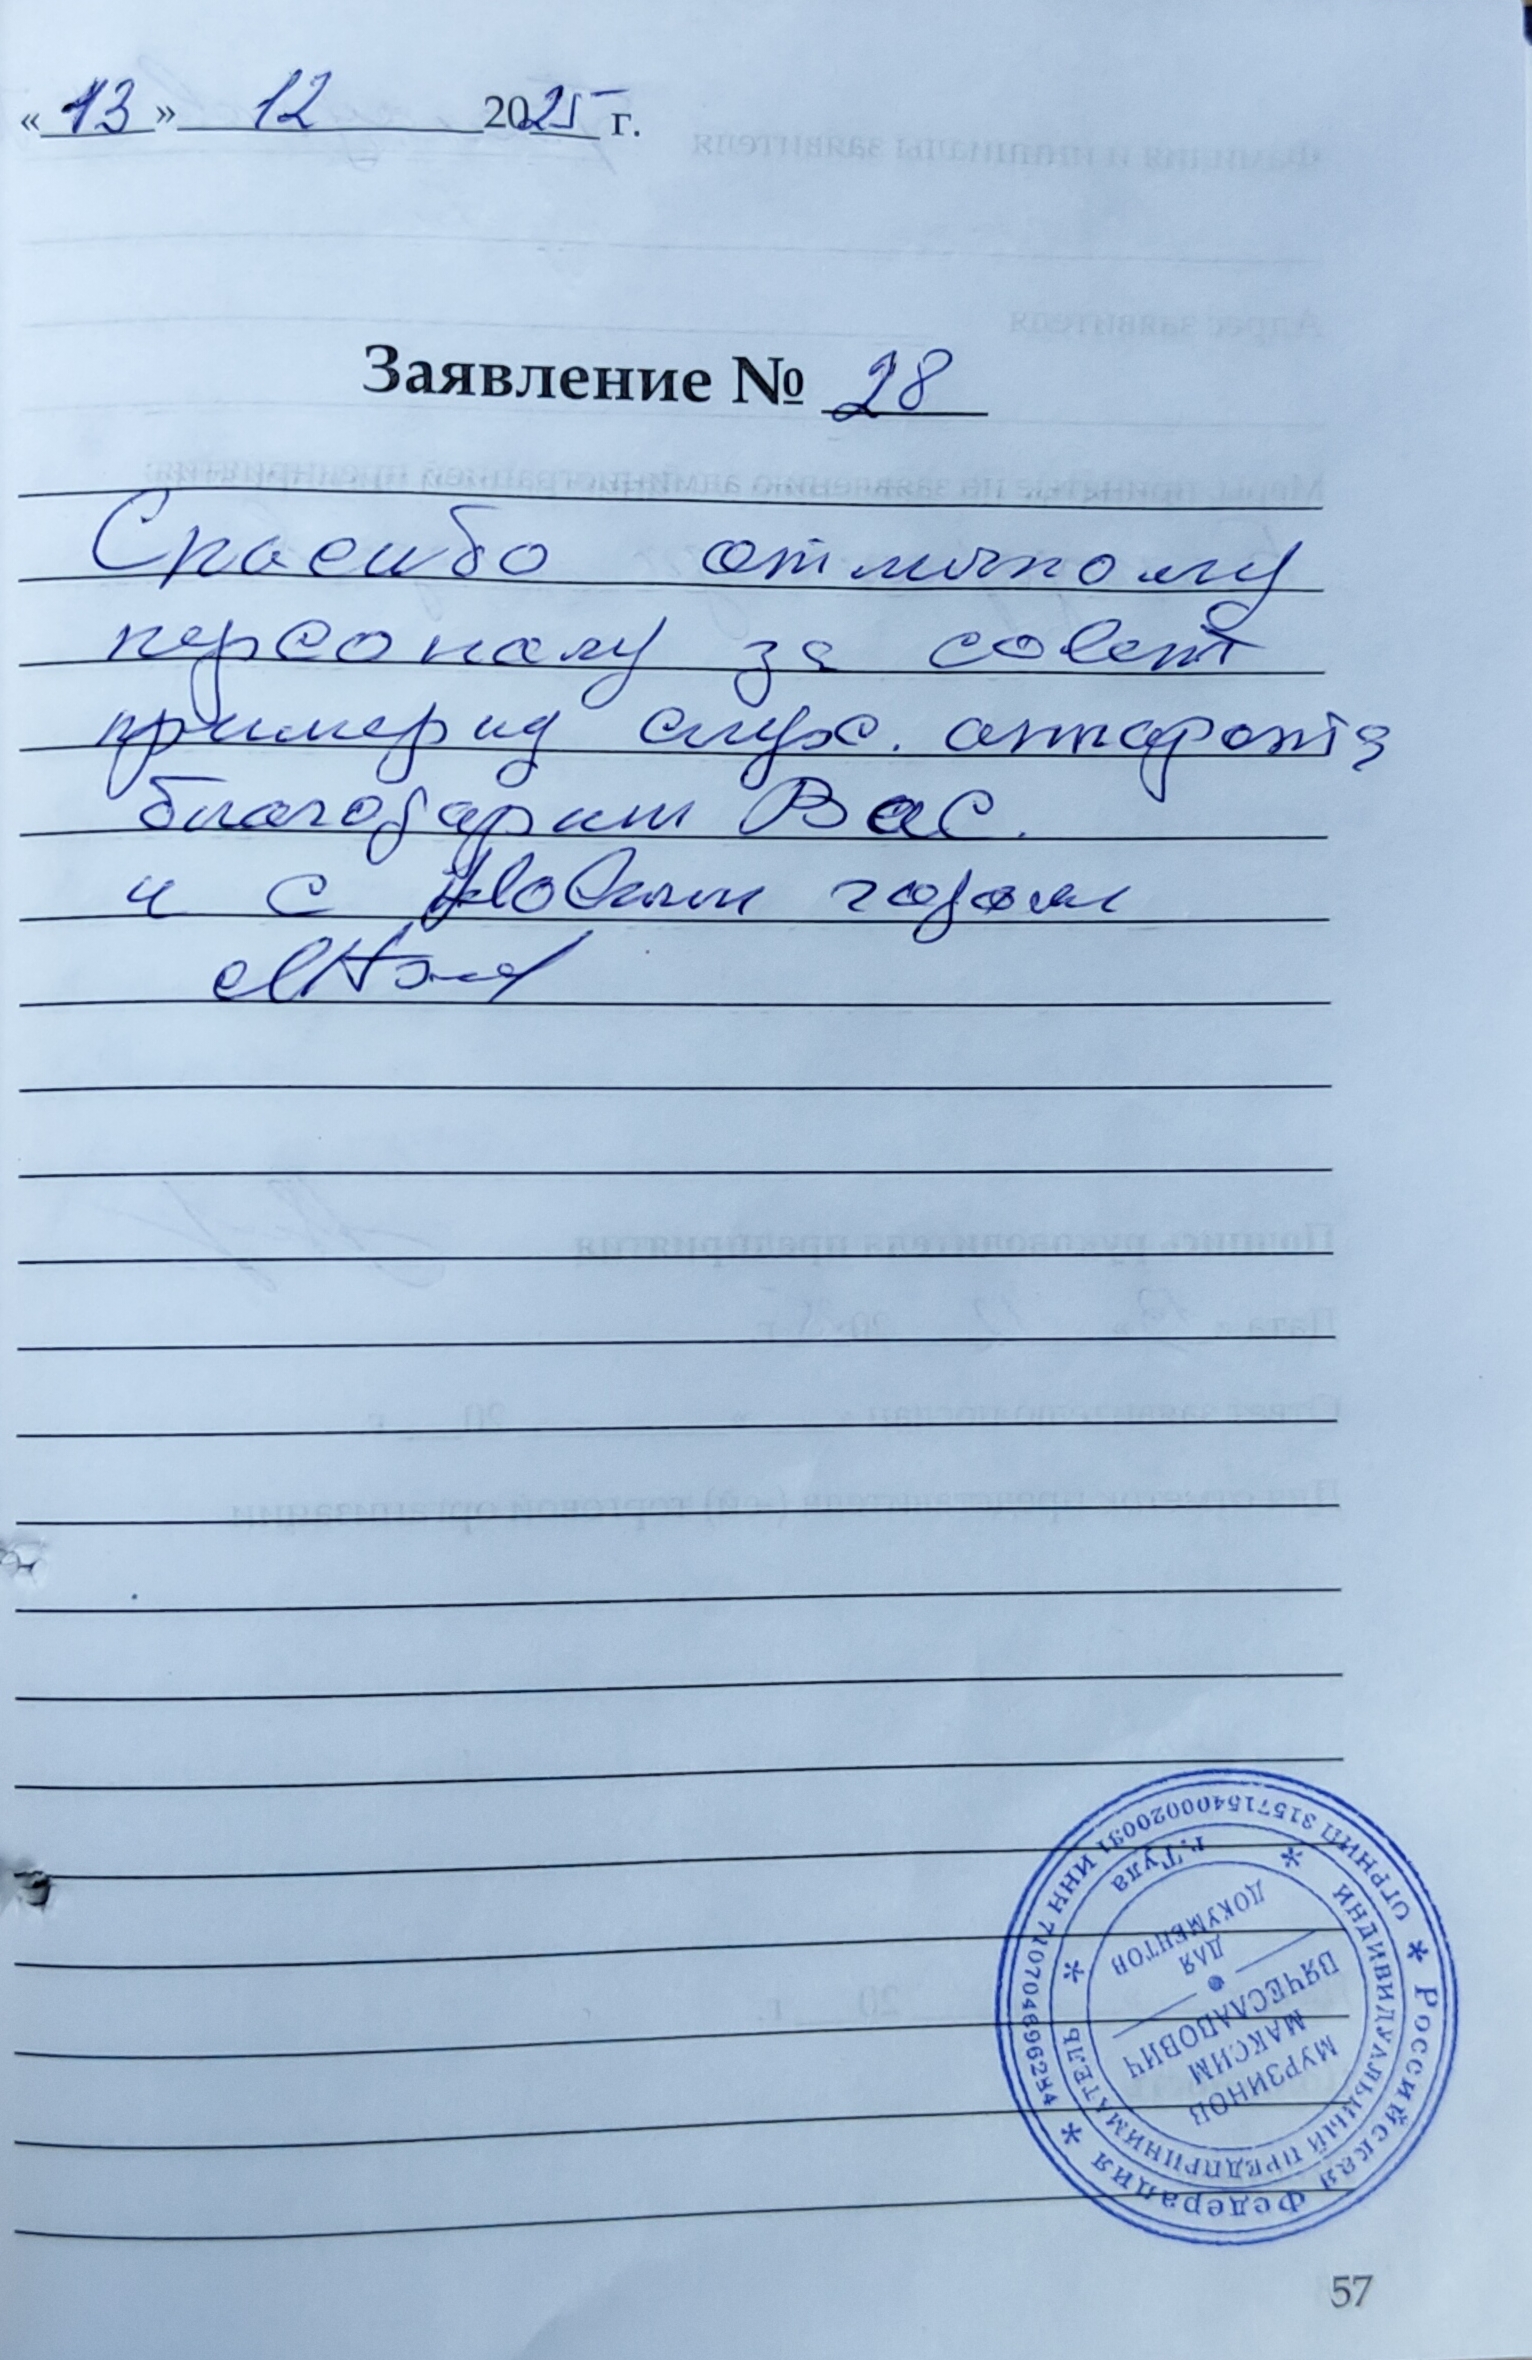 «13» 12 2025 г.
Заявление № 28
Спасибо отличному
персоналу за совет
примерку слух. аппарата
благодарим Вас.
и с Новым годом
Российская Федерация
ОГРНИП 315715400020091 ИНН
ИНДИВИДУАЛЬНЫЙ ПРЕДПРИНИМАТЕЛЬ
г.Тула
МУРЗИНОВ
МАКСИМ
ВЯЧЕСЛАВОВИЧ
ДЛЯ
ДОКУМЕНТОВ
57